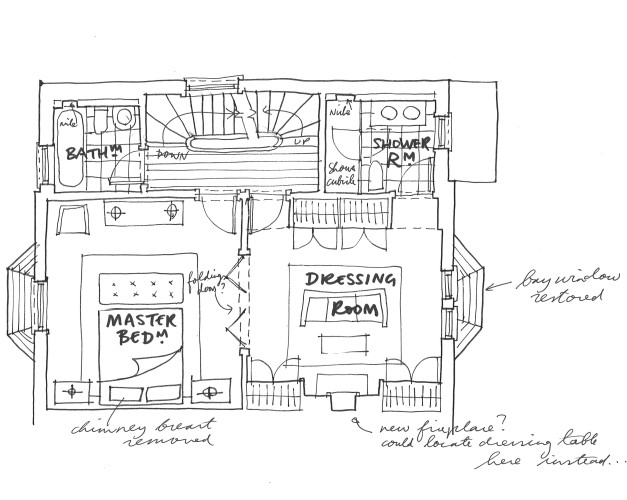 niche
BATHM
DOWN
UP
niche
SHOWER
RM
shower
cubicle
folding
doors?
DRESSING
ROOM
MASTER
BEDM.
bay window
restored
chimney breast
removed
new fireplace?
could locate dressing table
here instead...